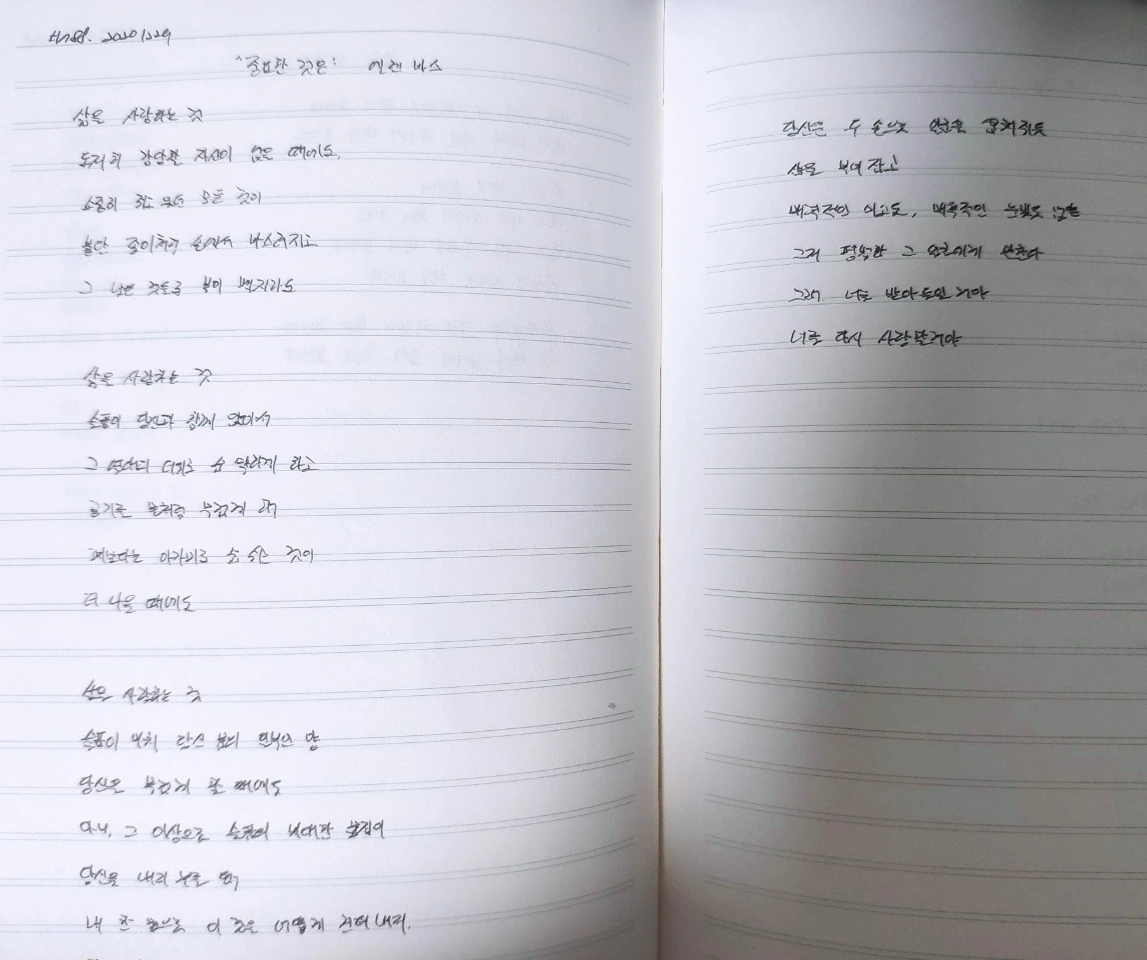 20201229
"중요한 것은" 엘렌 바스
삶을 사랑하는 것
도저히 감당할 자신이 없을 때에도,
소중히 쥐고 있던 모든 것이
불탄 종이처럼 손에서 바스러지고
그 남은 것도로 목이 멜지라도
삶을 사랑하는 것
슬픔이 당신과 함께 앉아서
그 열대의 더위로 숨 막히게 하고
공기를 물처럼 무겁게 해
폐보다는 아가미로 숨 쉬는 것이
더 나을 때에도
삶을 사랑하는 것
슬픔이 마치 당신 몸의 일부인 양
당신을 무겁게 할 때에도
아니, 그 이상으로 슬픔의 비대한 몸집이
당신을 내리 누를 때
내 한 몸으로 이 것을 어떻게 견뎌내지,
당신은 두 손으로 얼굴을 움켜쥐듯
삶을 부여잡고
매혹적인 미소도, 매혹적인 눈빛도 없는
그저 평범한 그 얼굴에게 말한다
그래 너를 받아들일 거야
너를 다시 사랑할거야